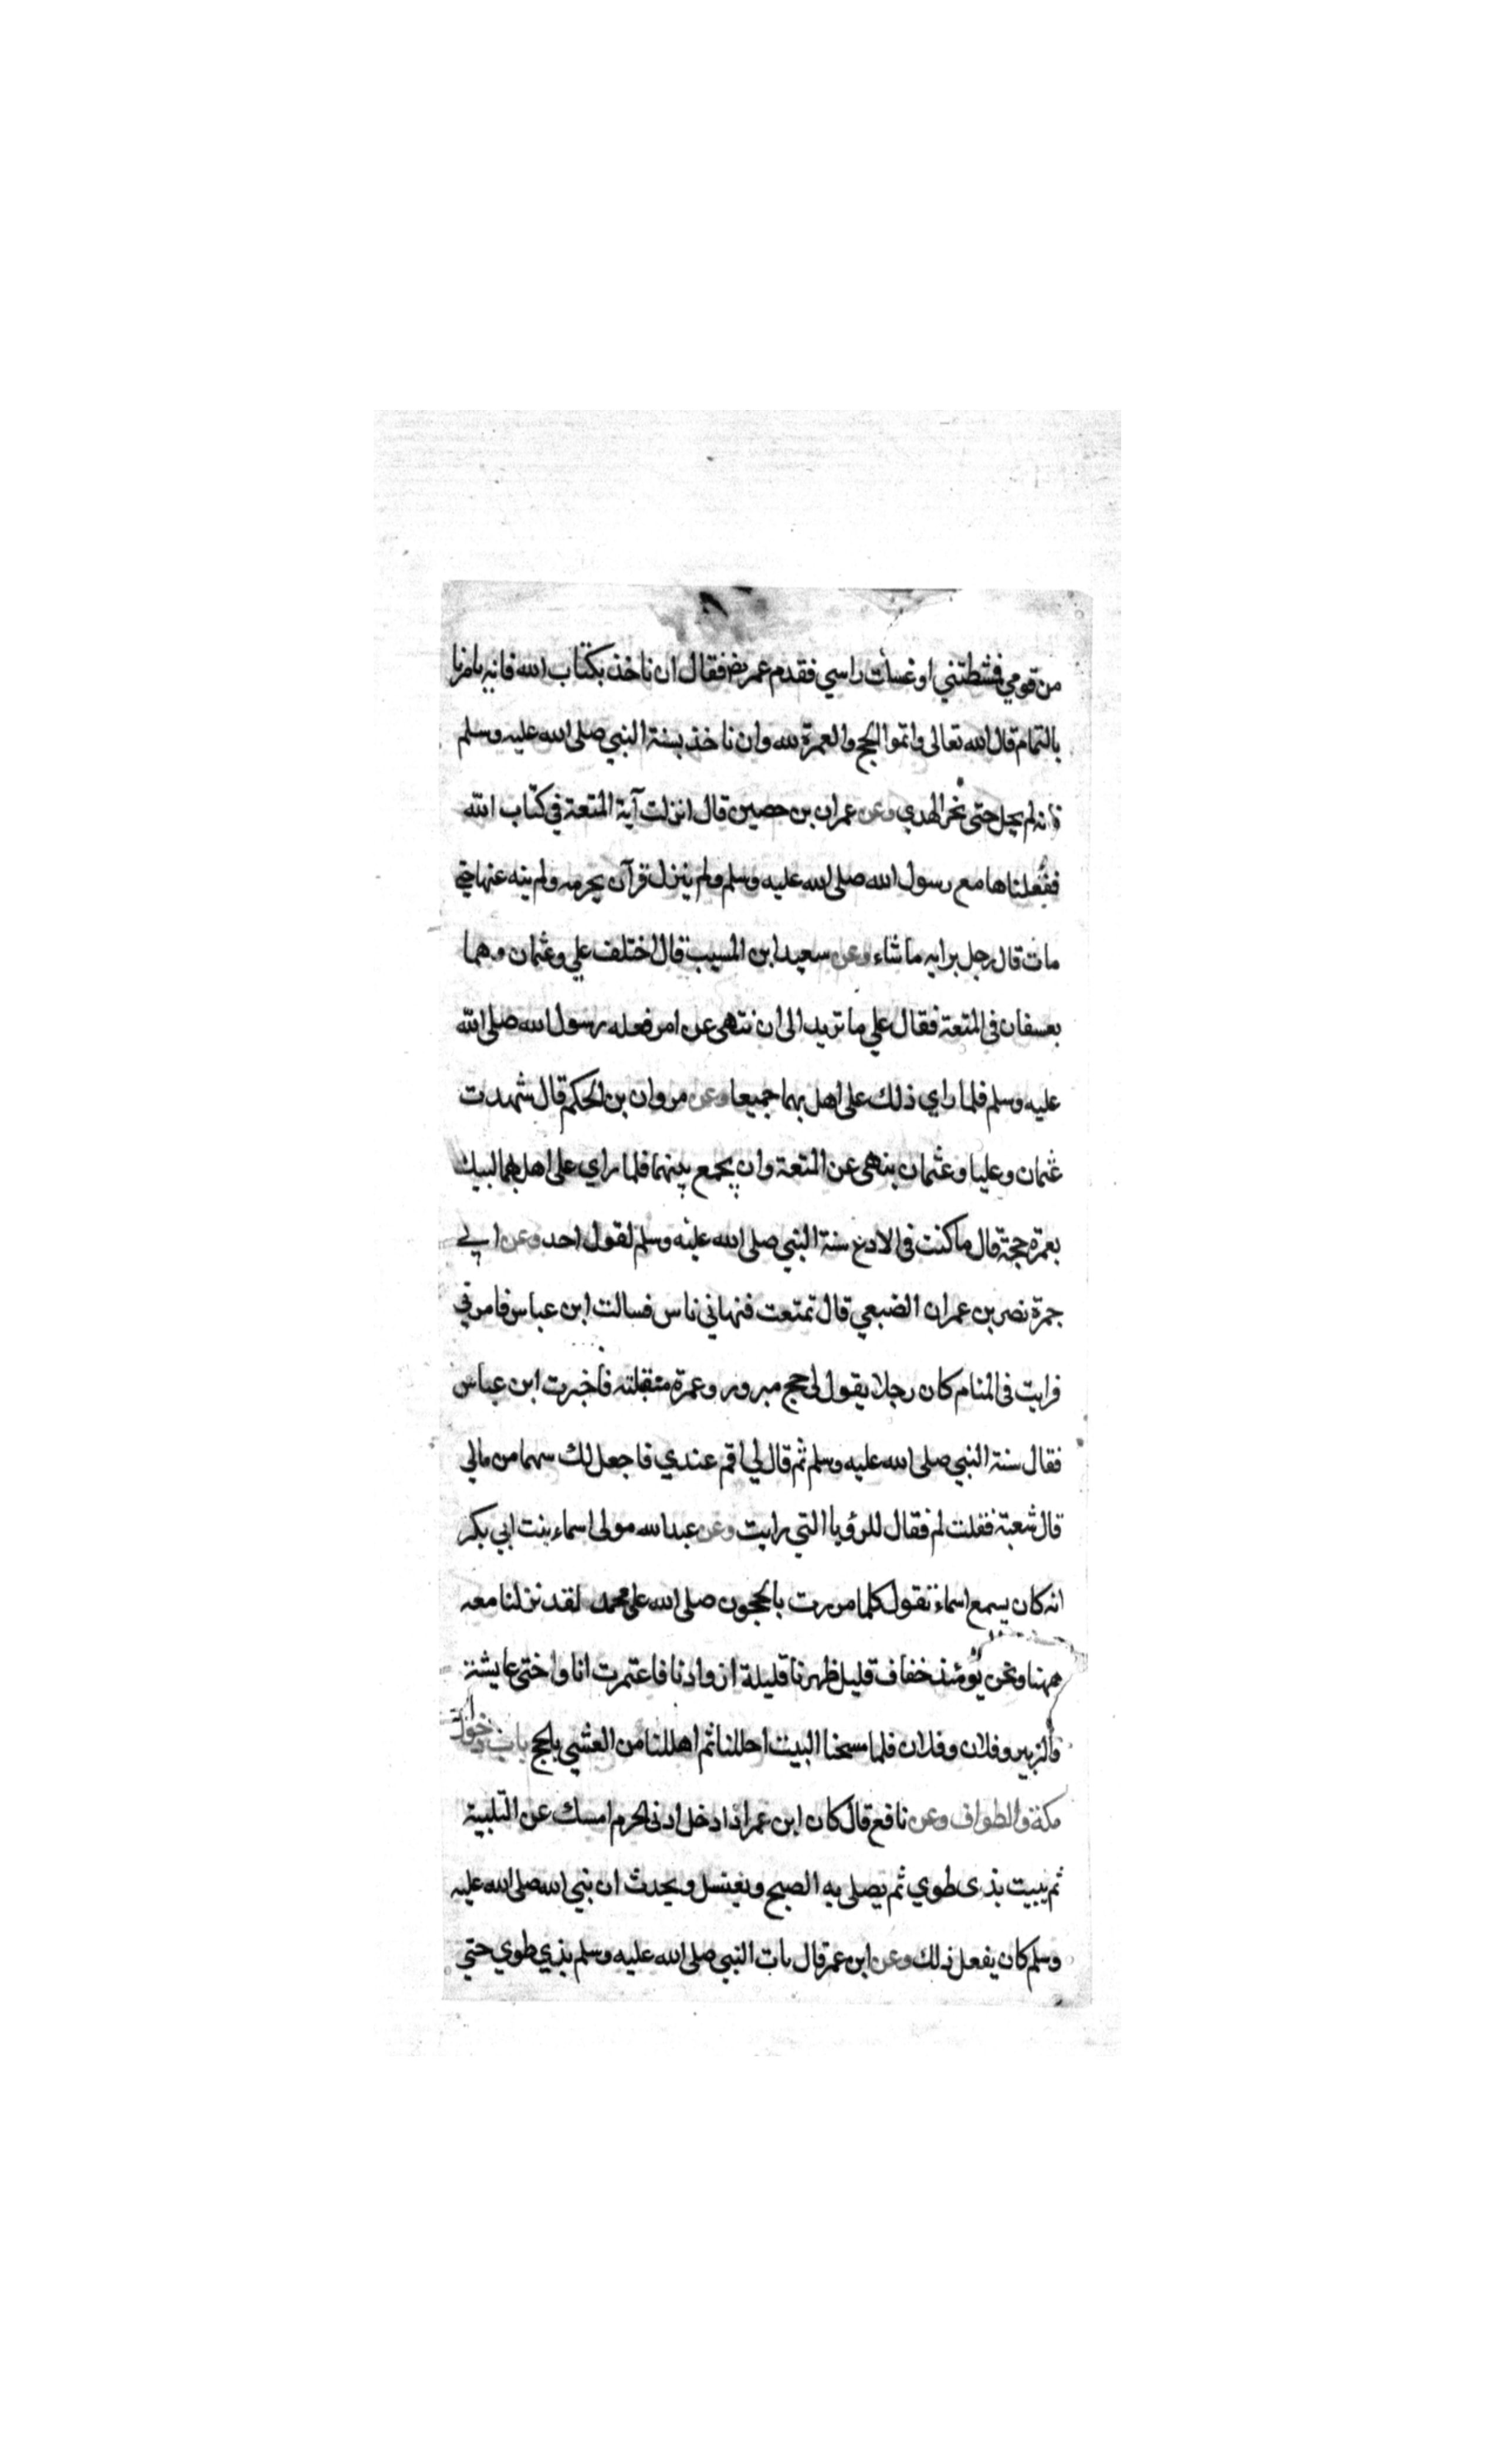 من قومي فمشطتني او غسلت راسي فقدم عمر رضه فقال ان ناخذ بكتاب الله فانه يامرنا
بالتمام قال الله تعالى واتموا الحج والعمرة لله وان ناخذ بسنة النبي صلى الله عليه وسلم
فانه لم يحل حتى نحر الهدي وعن عمران بن حصين قال انزلت آية المتعة في كتاب الله
ففعلناها مع رسول الله صلى الله عليه وسلم ولم ينزل قرآن يحرمه ولم ينه عنها حتي
مات قال رجل برايه ما شاء وعن سعيد ابن المسيب قال اختلف علي وعثمان وهما
بعسفان في المتعة فقال علي ما تريد الى ان تنهى عن امر فعله رسول الله صلى الله
عليه وسلم فلما راي ذلك على اهل بهما جميعا وعن مروان بن الحكم قال شهدت
عثمان وعليا وعثمان ينهى عن المتعة وان يجمع بينهما فلما راي على اهل بهما لبيك
بعمرة حجة قال ما كنت في الادع سنة النبي صلى الله عليه وسلم لقول احد وعن ابي
جمرة نصر بن عمران الضبعي قال تمتعت فنهاني ناس فسالت ابن عباس فامرني
فرايت في المنام كان رجلا يقول لي حج مبرور وعمرة متقبلته فاخبرت ابن عباس
فقال سنة النبي صلى الله عليه وسلم ثم قال لي اقم عندي فاجعل لك سهما من مالي
قال شعبة فقلت لم فقال للرؤيا التي رايت وعن عبد الله مولى اسماء بنت ابي بكر
انه كان يسمع اسماء تقول كلما مررت بالحجون صلى الله على محمد لقد نزلنا معه
ههنا ونحن يومئذ خفاف قليل ظهرنا قليلة ازوادنا فاعتمرت انا واختي عايشة
والزبير وفلان وفلان فلما مسحنا البيت احللنا ثم اهللنا من العشي بالحج باب دخول
مكة والطواف وعن نافع قال كان ابن عمر اذا دخل ادنى الحرم امسك عن التلبية
ثم يبيت بذى طوي ثم يصلي به الصبح ويغتسل ويحدث ان نبي الله صلى الله عليه
وسلم كان يفعل ذلك وعن ابن عمر قال بات النبي صلى الله عليه وسلم بذي طوي حتي